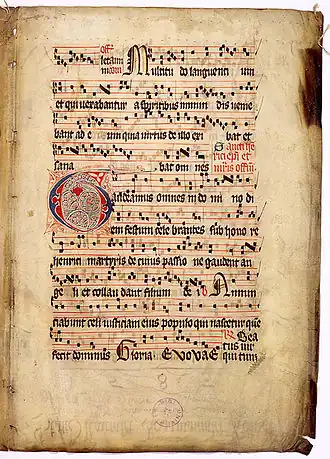 Off
Multitu do languenti um
et qui vexabantur a spiritibus inmun dis venie
bant ad e um quia virtus de illo exi bat et
sana bat om nes
Sancti hen
rici epi et
mris offm
Gaudeamus omnes in do mi no di
em festum cele brantes sub hono re
henrici martyris de cuius passio ne gaudent an
ge li et collau dant filium de i Annun
ciabunt celi iusticiam eius populo qui nascetur que
Bea
fecit dominus Gloria E V O V A E tus vir qui timi
8